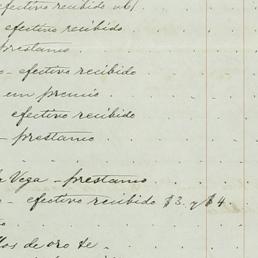 efectivo recibido
efectivo recibido
prestamo
- efectivo recibido
un premio
efectivo recibido
- prestamo
Vega - prestamo
- efectivo recibido $3. y $4.
de oro